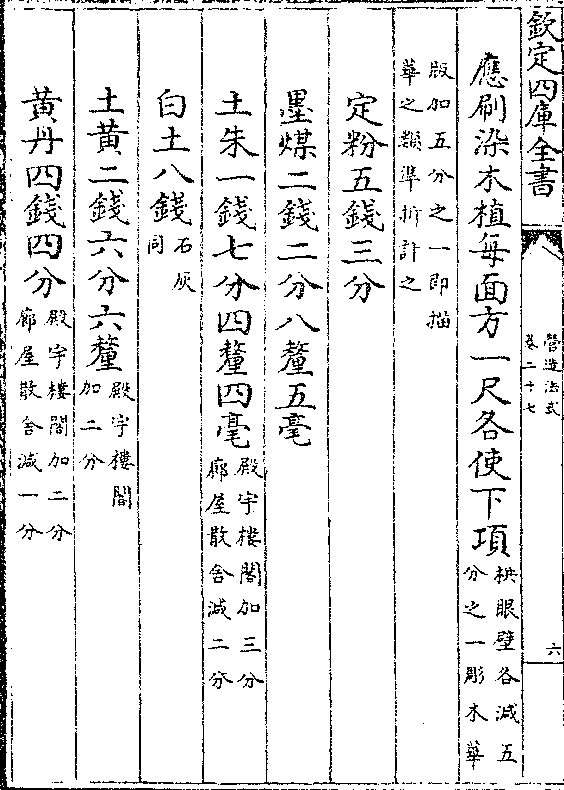 欽定四庫全書
營造法式
卷二十七
六
應刷染木植每面方一尺各使下項栱眼壁各減五分之一彫木華
版加五分之一即描華之類準折計之
定粉五錢三分
墨煤二錢二分八釐五毫
土朱一錢七分四釐四毫殿宇樓閣加三分廊屋散舍減二分
白土八錢石灰同
土黃二錢六分六釐殿宇樓閣加二分
黃丹四錢四分殿宇樓閣加二分廊屋散舍減一分